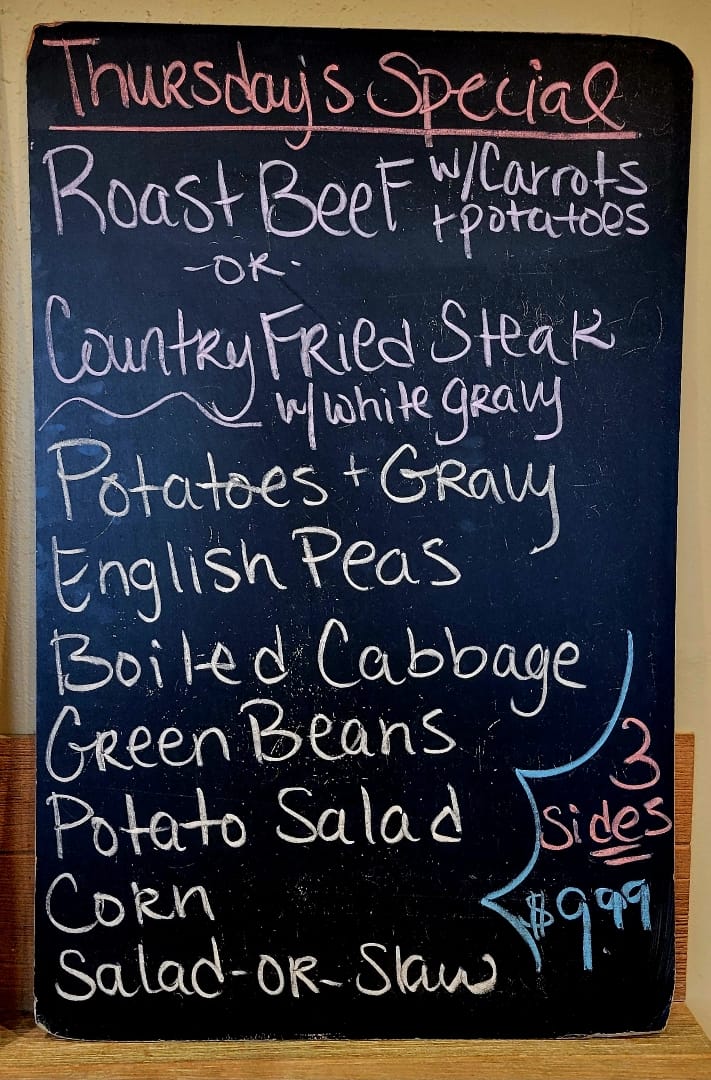 Thursday's Special
Roast Beef w/Carrots
+potatoes
-OR-
Country Fried Steak
w/white gravy
Potatoes + Gravy
English Peas
Boiled Cabbage
Green Beans
Potato Salad
Corn
Salad-OR-Slaw
3
sides
$9.99